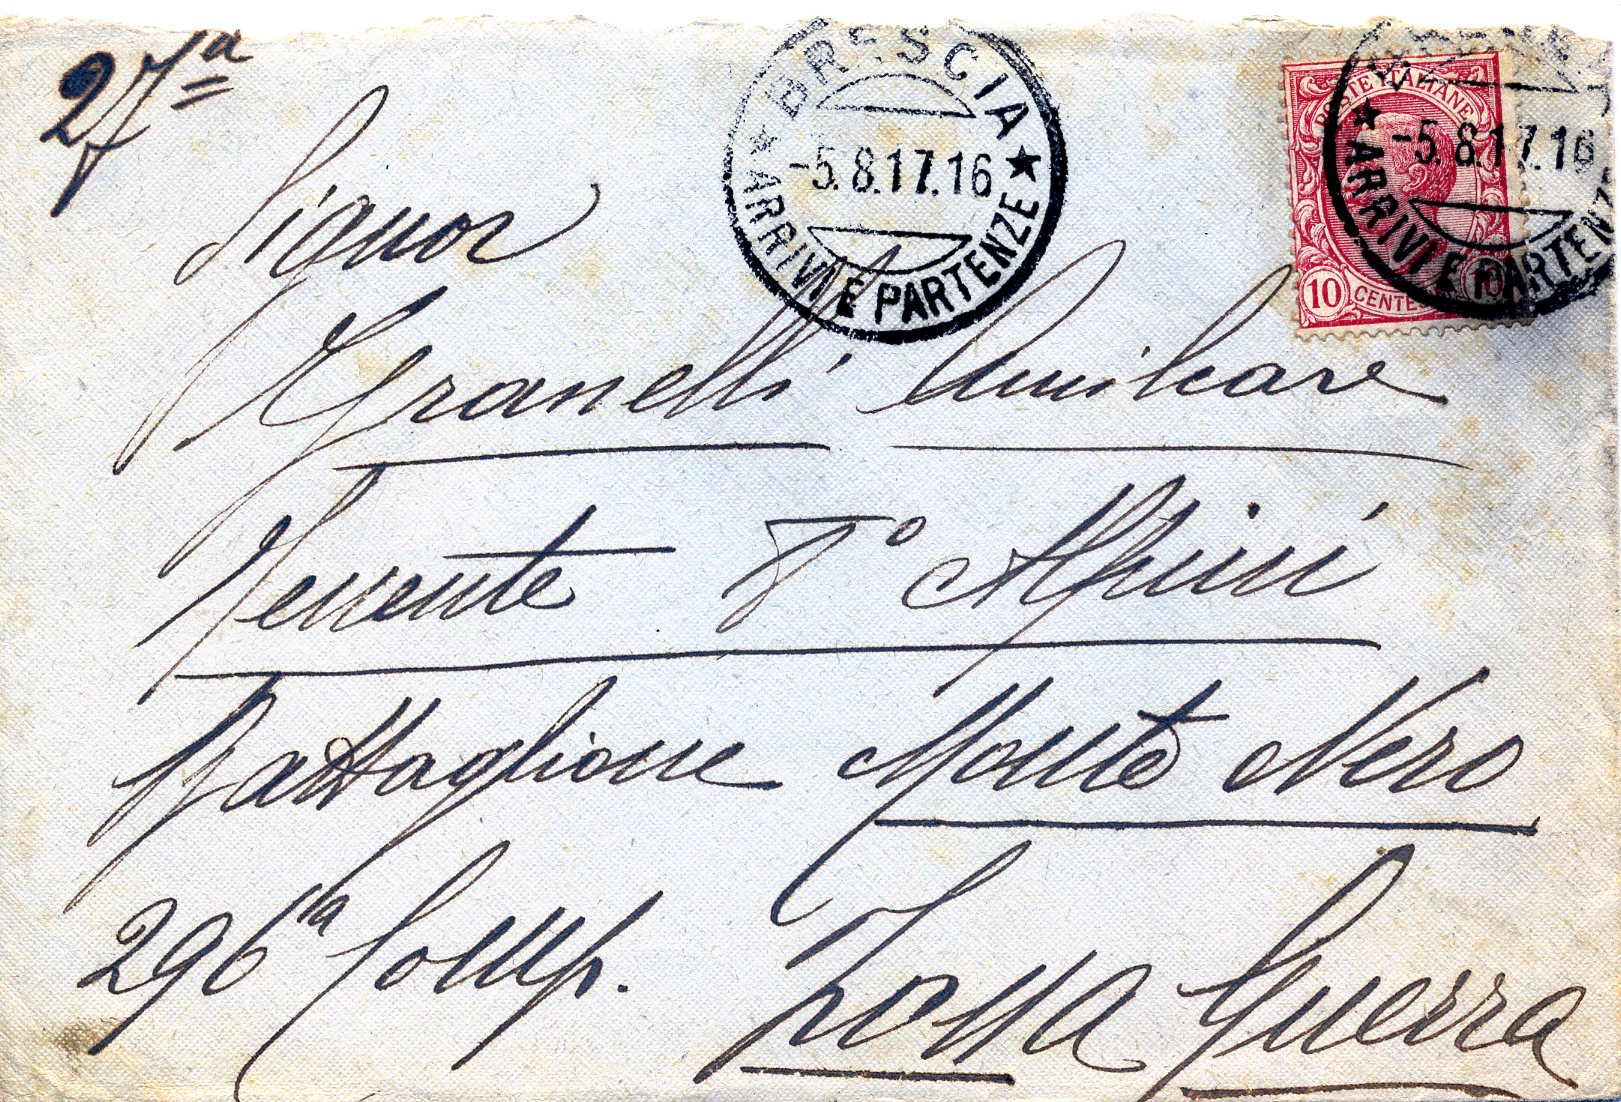 27ª
BRESCIA
-5.8.17.16
ARRIVI E PARTENZE
POSTE ITALIANE
-5.8.17.16
ARRIVI E PARTENZE
10 CENTE 10
Signor
Granelli Amilcare
Tenente 8° Alpini
Battaglione Monte Nero
296ª Comp. Zona Guerra